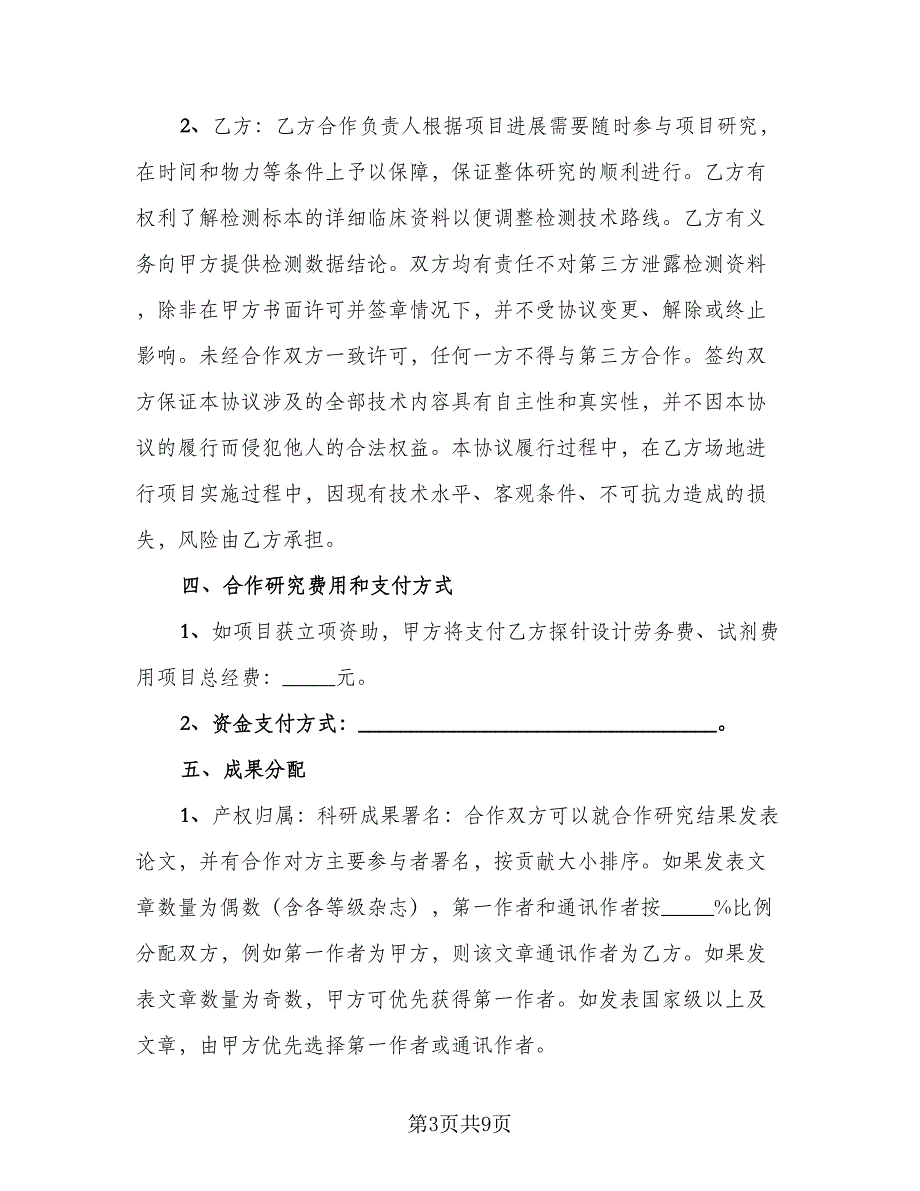 2、乙方：乙方合作负责人根据项目进展需要随时参与项目研究，
在时间和物力等条件上予以保障，保证整体研究的顺利进行。乙方有
权利了解检测标本的详细临床资料以便调整检测技术路线。乙方有义
务向甲方提供检测数据结论。双方均有责任不对第三方泄露检测资料
，除非在甲方书面许可并签章情况下，并不受协议变更、解除或终止
影响。未经合作双方一致许可，任何一方不得与第三方合作。签约双
方保证本协议涉及的全部技术内容具有自主性和真实性，并不因本协
议的履行而侵犯他人的合法权益。本协议履行过程中，在乙方场地进
行项目实施过程中，因现有技术水平、客观条件、不可抗力造成的损
失，风险由乙方承担。
四、合作研究费用和支付方式
1、如项目获立项资助，甲方将支付乙方探针设计劳务费、试剂费
用项目总经费：_____元。
2、资金支付方式：__________________________________。
五、成果分配
1、产权归属：科研成果署名：合作双方可以就合作研究结果发表
论文，并有合作对方主要参与者署名，按贡献大小排序。如果发表文
章数量为偶数（含各等级杂志），第一作者和通讯作者按_____%比例
分配双方，例如第一作者为甲方，则该文章通讯作者为乙方。如果发
表文章数量为奇数，甲方可优先获得第一作者。如发表国家级以上及
文章，由甲方优先选择第一作者或通讯作者。
第3页共9页